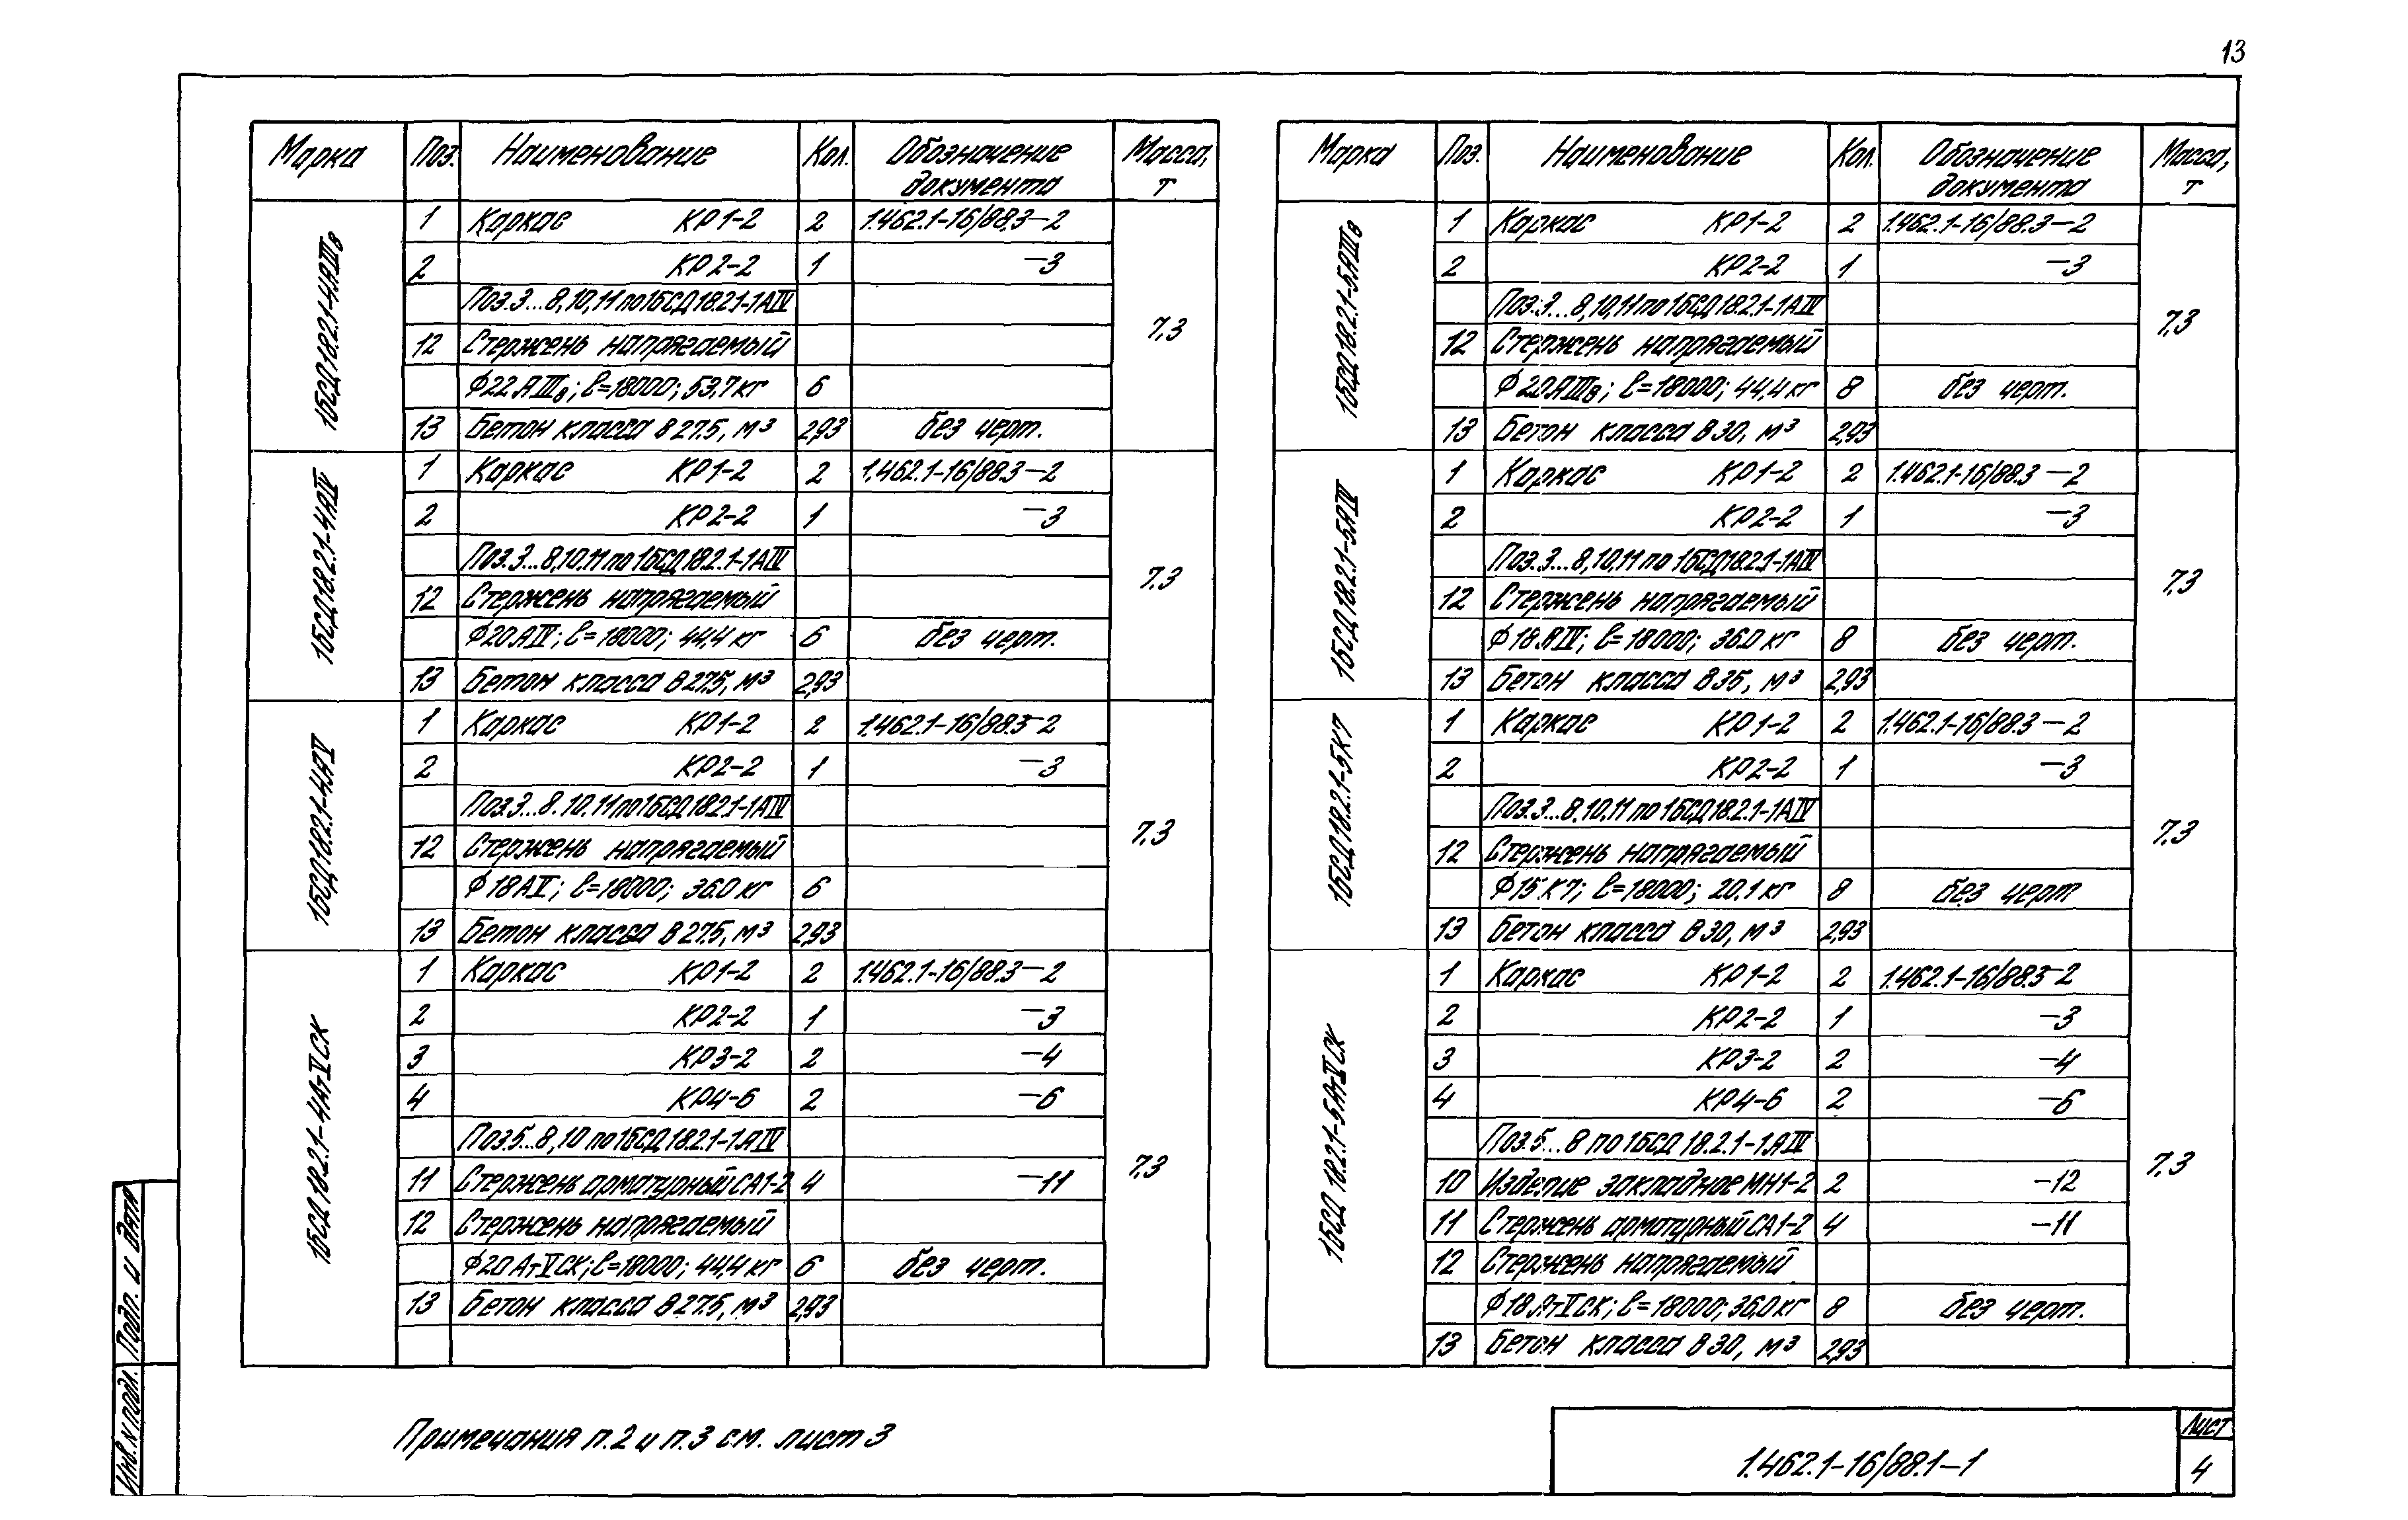 13
Марка Поз. Наименование Кол. Обозначение документа Масса, т
1БСД18.2.1-4АIIIв
1 Каркас КР1-2 2 1.462.1-16/88.3-2
2 КР2-2 1 -3
Поз.3...8,10,11 по 1БСД18.2.1-1АIV
7.3
12 Стержень напрягаемый
Ф22АIIIв; ℓ=18000; 53,7 кг 6
13 Бетон класса В27.5, м³ 2,93 без черт.
1БСД18.2.1-4АIV
1 Каркас КР1-2 2 1.462.1-16/88.3-2
2 КР2-2 1 -3
Поз.3...8,10,11 по 1БСД18.2.1-1АIV
7.3
12 Стержень напрягаемый
Ф20АIV; ℓ=18000; 44,4 кг 6 без черт.
13 Бетон класса В27.5, м³ 2,93
1БСД18.2.1-4АV
1 Каркас КР1-2 2 1.462.1-16/88.3-2
2 КР2-2 1 -3
Поз.3...8.10.11 по 1БСД18.2.1-1АIV
7.3
12 Стержень напрягаемый
Ф18АV; ℓ=18000; 36.0 кг 6
13 Бетон класса В27.5, м³ 2,93
1БСД18.2.1-4Ат-VСК
1 Каркас КР1-2 2 1.462.1-16/88.3-2
2 КР2-2 1 -3
3 КР3-2 2 -4
4 КР4-6 2 -6
Поз.5...8,10 по 1БСД18.2.1-1АIV
7.3
11 Стержень арматурный СА1-2 4 -11
12 Стержень напрягаемый
Ф20Ат-VСК; ℓ=18000; 44,4 кг 6 без черт.
13 Бетон класса В27.5, м³ 2,93
Марка Поз. Наименование Кол. Обозначение документа Масса, т
1БСД18.2.1-5АIIIв
1 Каркас КР1-2 2 1.462.1-16/88.3-2
2 КР2-2 1 -3
Поз.3...8,10,11 по 1БСД18.2.1-1АIV
7.3
12 Стержень напрягаемый
Ф20АIIIв; ℓ=18000; 44,4 кг 8 без черт.
13 Бетон класса В30, м³ 2,93
1БСД18.2.1-5АIV
1 Каркас КР1-2 2 1.462.1-16/88.3-2
2 КР2-2 1 -3
Поз.3...8,10,11 по 1БСД18.2.1-1АIV
7.3
12 Стержень напрягаемый
Ф18АIV; ℓ=18000; 36.0 кг 8 без черт.
13 Бетон класса В35, м³ 2,93
1БСД18.2.1-5К7
1 Каркас КР1-2 2 1.462.1-16/88.3-2
2 КР2-2 1 -3
Поз.3...8,10,11 по 1БСД18.2.1-1АIV
7.3
12 Стержень напрягаемый
Ф15К7; ℓ=18000; 20,1 кг 8 без черт
13 Бетон класса В30, м³ 2,93
1БСД18.2.1-5Ат-VСК
1 Каркас КР1-2 2 1.462.1-16/88.3-2
2 КР2-2 1 -3
3 КР3-2 2 -4
4 КР4-6 2 -6
Поз.5...8 по 1БСД18.2.1-1АIV
7.3
10 Изделие закладное МН1-2 2 -12
11 Стержень арматурный СА1-2 4 -11
12 Стержень напрягаемый
Ф18Ат-VСК; ℓ=18000; 36,0 кг 8 без черт.
13 Бетон класса В30, м³ 2,93
Примечания п.2 и п.3 см. лист 3
1.462.1-16/88.1-1
Лист
4
Инв.N подл. Подп. и дата